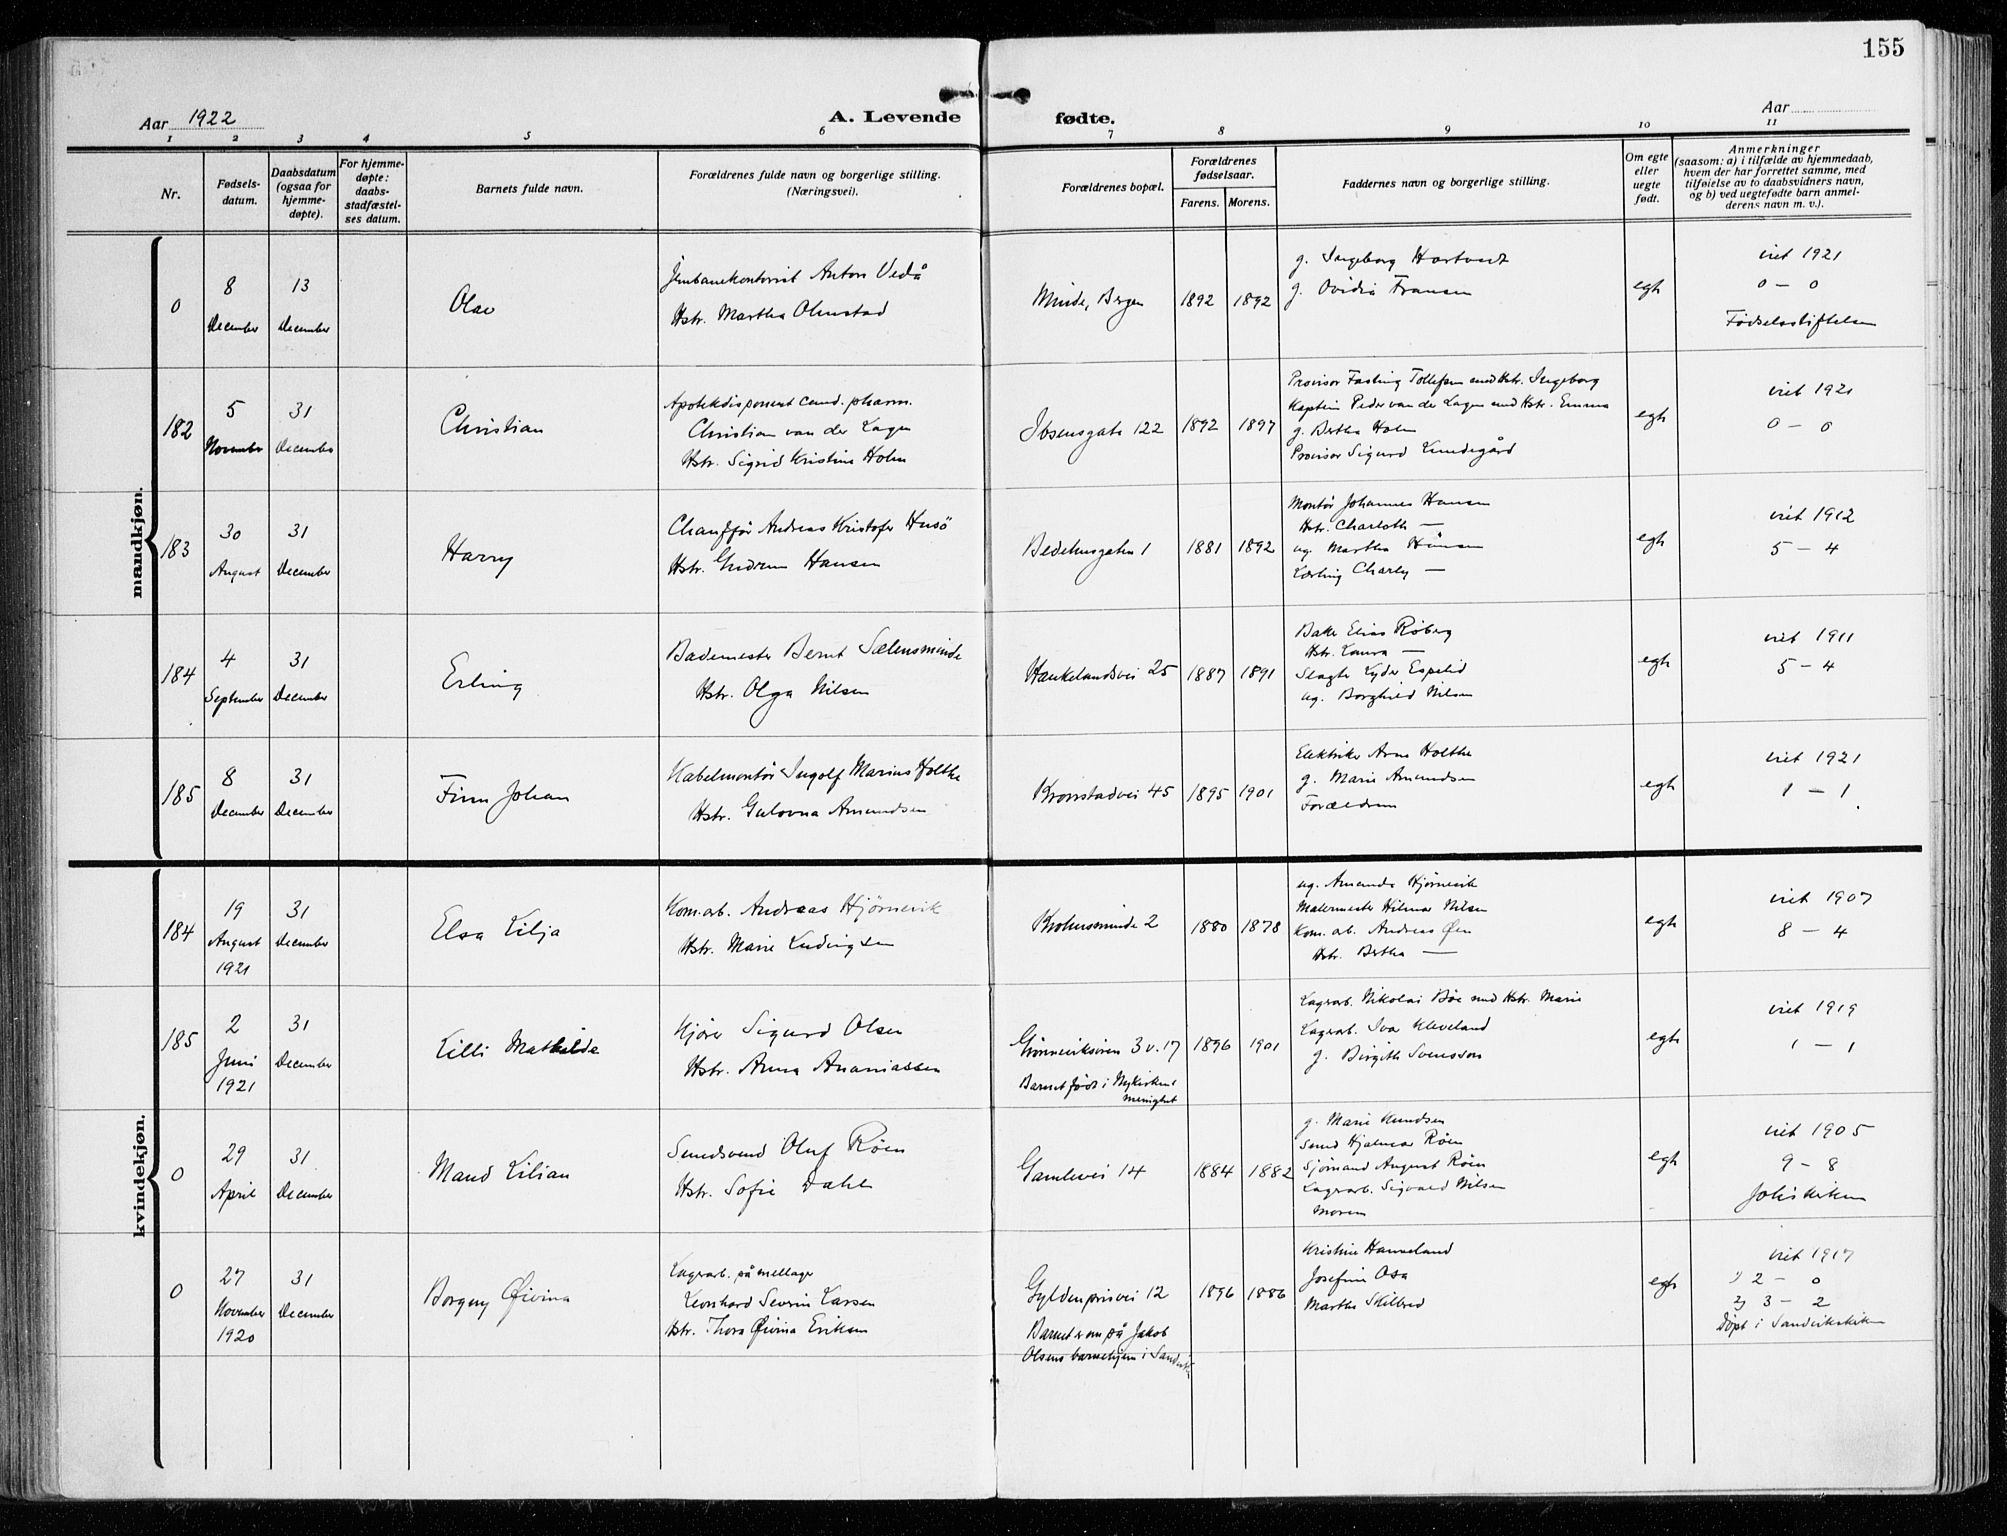 155
Aar 1922
A. Levende fødte.
Aar
1 2 3 4 5 6 7 8 9 10 11
Nr.
Fødsels-
datum.
Daabsdatum
(ogsaa for
hjemme-
døpte).
For hjemme-
døpte:
daabs-
stadfæstel-
ses datum.
Barnets fulde navn.
Forældrenes fulde navn og borgerlige stilling.
(Næringsvei).
Forældrenes bopæl.
Forældrenes
fødselsaar.
Farens. Morens.
Faddernes navn og borgerlige stilling.
Om egte
eller
uegte
født.
Anmerkninger
(saasom: a) i tilfælde av hjemmedaab,
hvem der har forrettet samme, med
tilføielse av to daabsvidners navn,
og b) ved uegtefødte barn anmel-
derens navn m. v.).
mandkjøn.
0
8
December
13
December
Olav
Jernbanekontorist Anton Vedå
Hstr. Martha Olmstad
Minde, Bergen
1892 1892
g. Ingeborg Hartvedt
g. Ovidia Fransen
egte
viet 1921
0 — 0
Fødselsstiftelsen
182
5
November
31
December
Christian
Apotekdisponent cand. pharm.
Christian van der Lagen
Hstr. Sigrid Kristine Holm
Ibsensgate 122
1892 1897
Provisor Fasting Tollefsen med Hstr. Ingeborg
Kaptein Peder van der Lagen med Hstr. Emma
g. Bertha Holm
Provisor Sigurd Lundegård
egte
viet 1921
0 — 0
183
30
August
31
December
Harry
Chauffør Andreas Kristofer Husö
Hstr. Gudrun Hansen
Bedehusgaten 1
1881 1892
Montør Johannes Hansen
Hstr. Charlotte —
ug. Martha Hansen
Lærling Charley —
egte
viet 1912
5 — 4
184
4
September
31
December
Erling
Bademester Bernt Sælensminde
Hstr. Olga Nilsen
Haukelandsvei 25
1887 1891
Baker Elias Røberg
Hstr. Laura —
Slagter Lyder Espelid
ug. Borghild Nilsen
egte
viet 1911
5 — 4
185
8
December
31
December
Finn Johan
Kabelmontör Ingolf Marius Holthe
Hstr. Gulovna Amundsen
Kronstadvei 45
1895 1901
Elektriker Arne Holthe
g. Marie Amundsen
Forældrene
egte
viet 1921
1 — 1
kvindekjøn.
184
19
August
1921
31
December
Elsa Lilja
Kom.arb. Andreas Hjørnevik
Hstr. Marie Ludvigsen
Krohnsminde 2
1880 1878
ug. Amanda Hjørnevik
Malermester Hilmar Nilsen
Kom. arb. Andreas Øen
Hstr. Bertha —
egte
viet 1907
8 — 4
185
2
Juni
1921
31
December
Lilli Mathilde
Kjører Sigurd Olsen
Hstr. Anna Ananiassen
Grønneviksøren 3 v. 17
Barnet født i Nykirkens
menighet
1896 1901
Lagerarb. Nikolai Böe med Hstr. Marie
Lagerarb. Ivar Kleveland
g. Birgith Svensson
egte
viet 1919
1 — 1
0
29
April
31
December
Maud Lilian
Smedsvend Oluf Røen
Hstr. Sofie Dahl
Gamlevei 14
1884 1882
g. Marie Knudsen
Smed Hjalmar Röen
Sjømand August Röen
Lagerarb. Sigvald Nilsen
Moren
egte
viet 1905
9 — 8
Johskirken
0
27
November
1920
31
December
Borgny Øivina
Lagerarb. på mellager
Leonhard Severin Larsen
Hstr. Thora Øivina Eriksen
Gyldenprisvei 12
Barnet er om på Jakob
Olsens barnehjem i Sandviken
1896 1886
Kristine Hauseland
Josefine Osa
Marthe Skilbred
egte
viet 1917
1) 2 — 0
2) 3 — 2
Døpt i Sandvikskirken